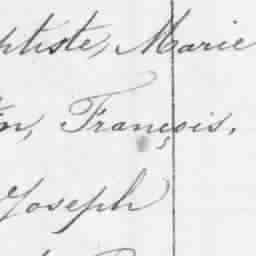 ptiste, Marie
n, François,
Joseph